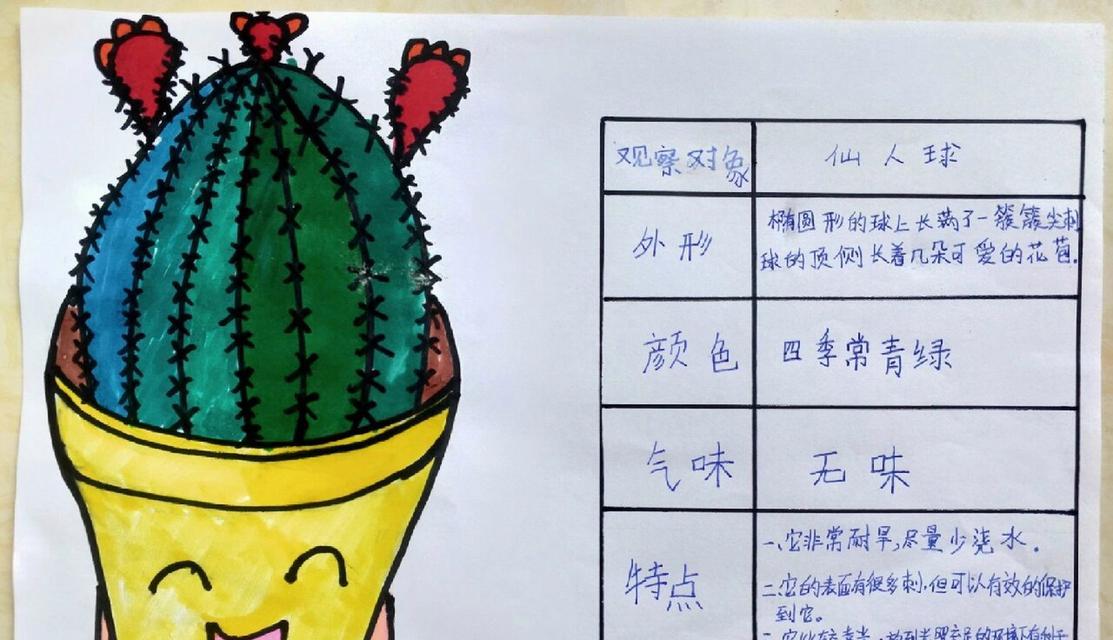 观察对象
仙人球
外形
椭圆形的球上长满了一簇簇尖刺
球的顶侧长着几朵可爱的花苞.
颜色
四季常青绿
气味
无味
特点
一、它非常耐旱,尽量少浇水.
二.它的表面有很多刺,但可以有效的保护
到它。